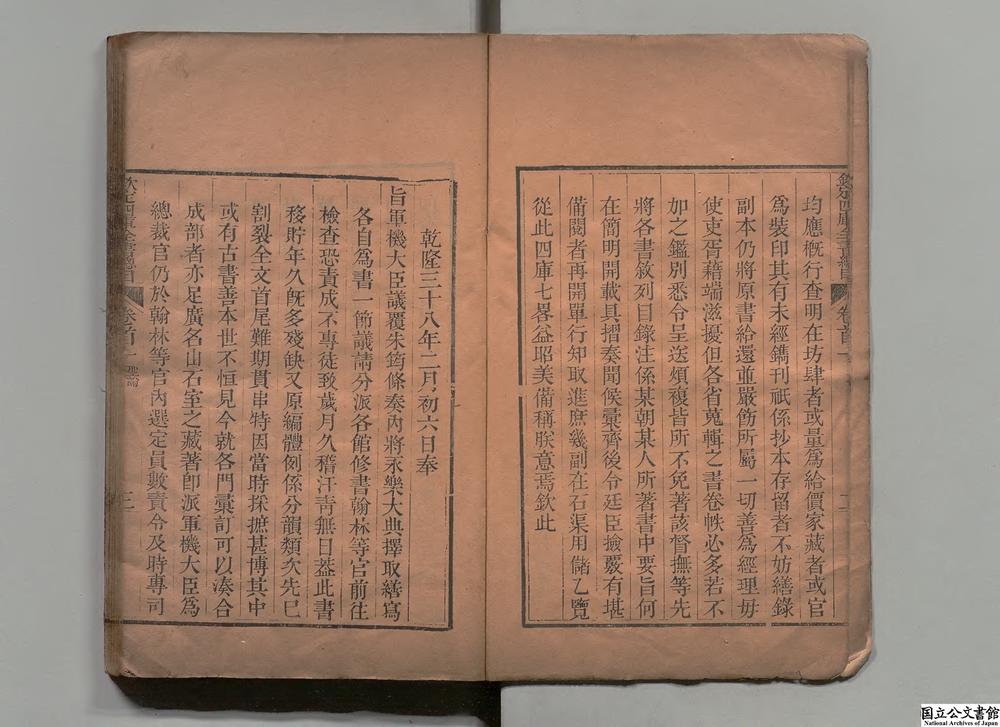 均應概行查明在坊肆者或量爲給價家藏者或官
爲裝印其有未經鐫刊祇係抄本存留者不妨繕錄
副本仍將原書給還並嚴飭所屬一切善爲經理毋
使吏胥藉端滋擾但各省蒐輯之書卷帙必多若不
加之鑑別悉令呈送煩複皆所不免著該督撫等先
將各書敘列目錄注係某朝某人所著書中要旨何
在簡明開載具摺奏聞候彙齊後令廷臣撿覈有堪
備閱者再開單行知取進庶幾副在石渠用儲乙覽
從此四庫七畧益昭美備稱朕意焉欽此
欽定四庫全書總目
卷首一
二
乾隆三十八年二月初六日奉
旨軍機大臣議覆朱筠條奏內將永樂大典擇取繕寫
各自爲書一節議請分派各館修書翰林等官前往
檢查恐責成不專徒致歲月久稽汗靑無日葢此書
移貯年久旣多殘缺又原編體例係分韻類次先已
割裂全文首尾難期貫串特因當時採摭甚博其中
或有古書善本世不恒見今就各門彙訂可以湊合
成部者亦足廣名山石室之藏著卽派軍機大臣爲
總裁官仍於翰林等官內選定員數責令及時專司
欽定四庫全書總目
卷首一
聖諭
三
国立公文書館
National Archives of Japan